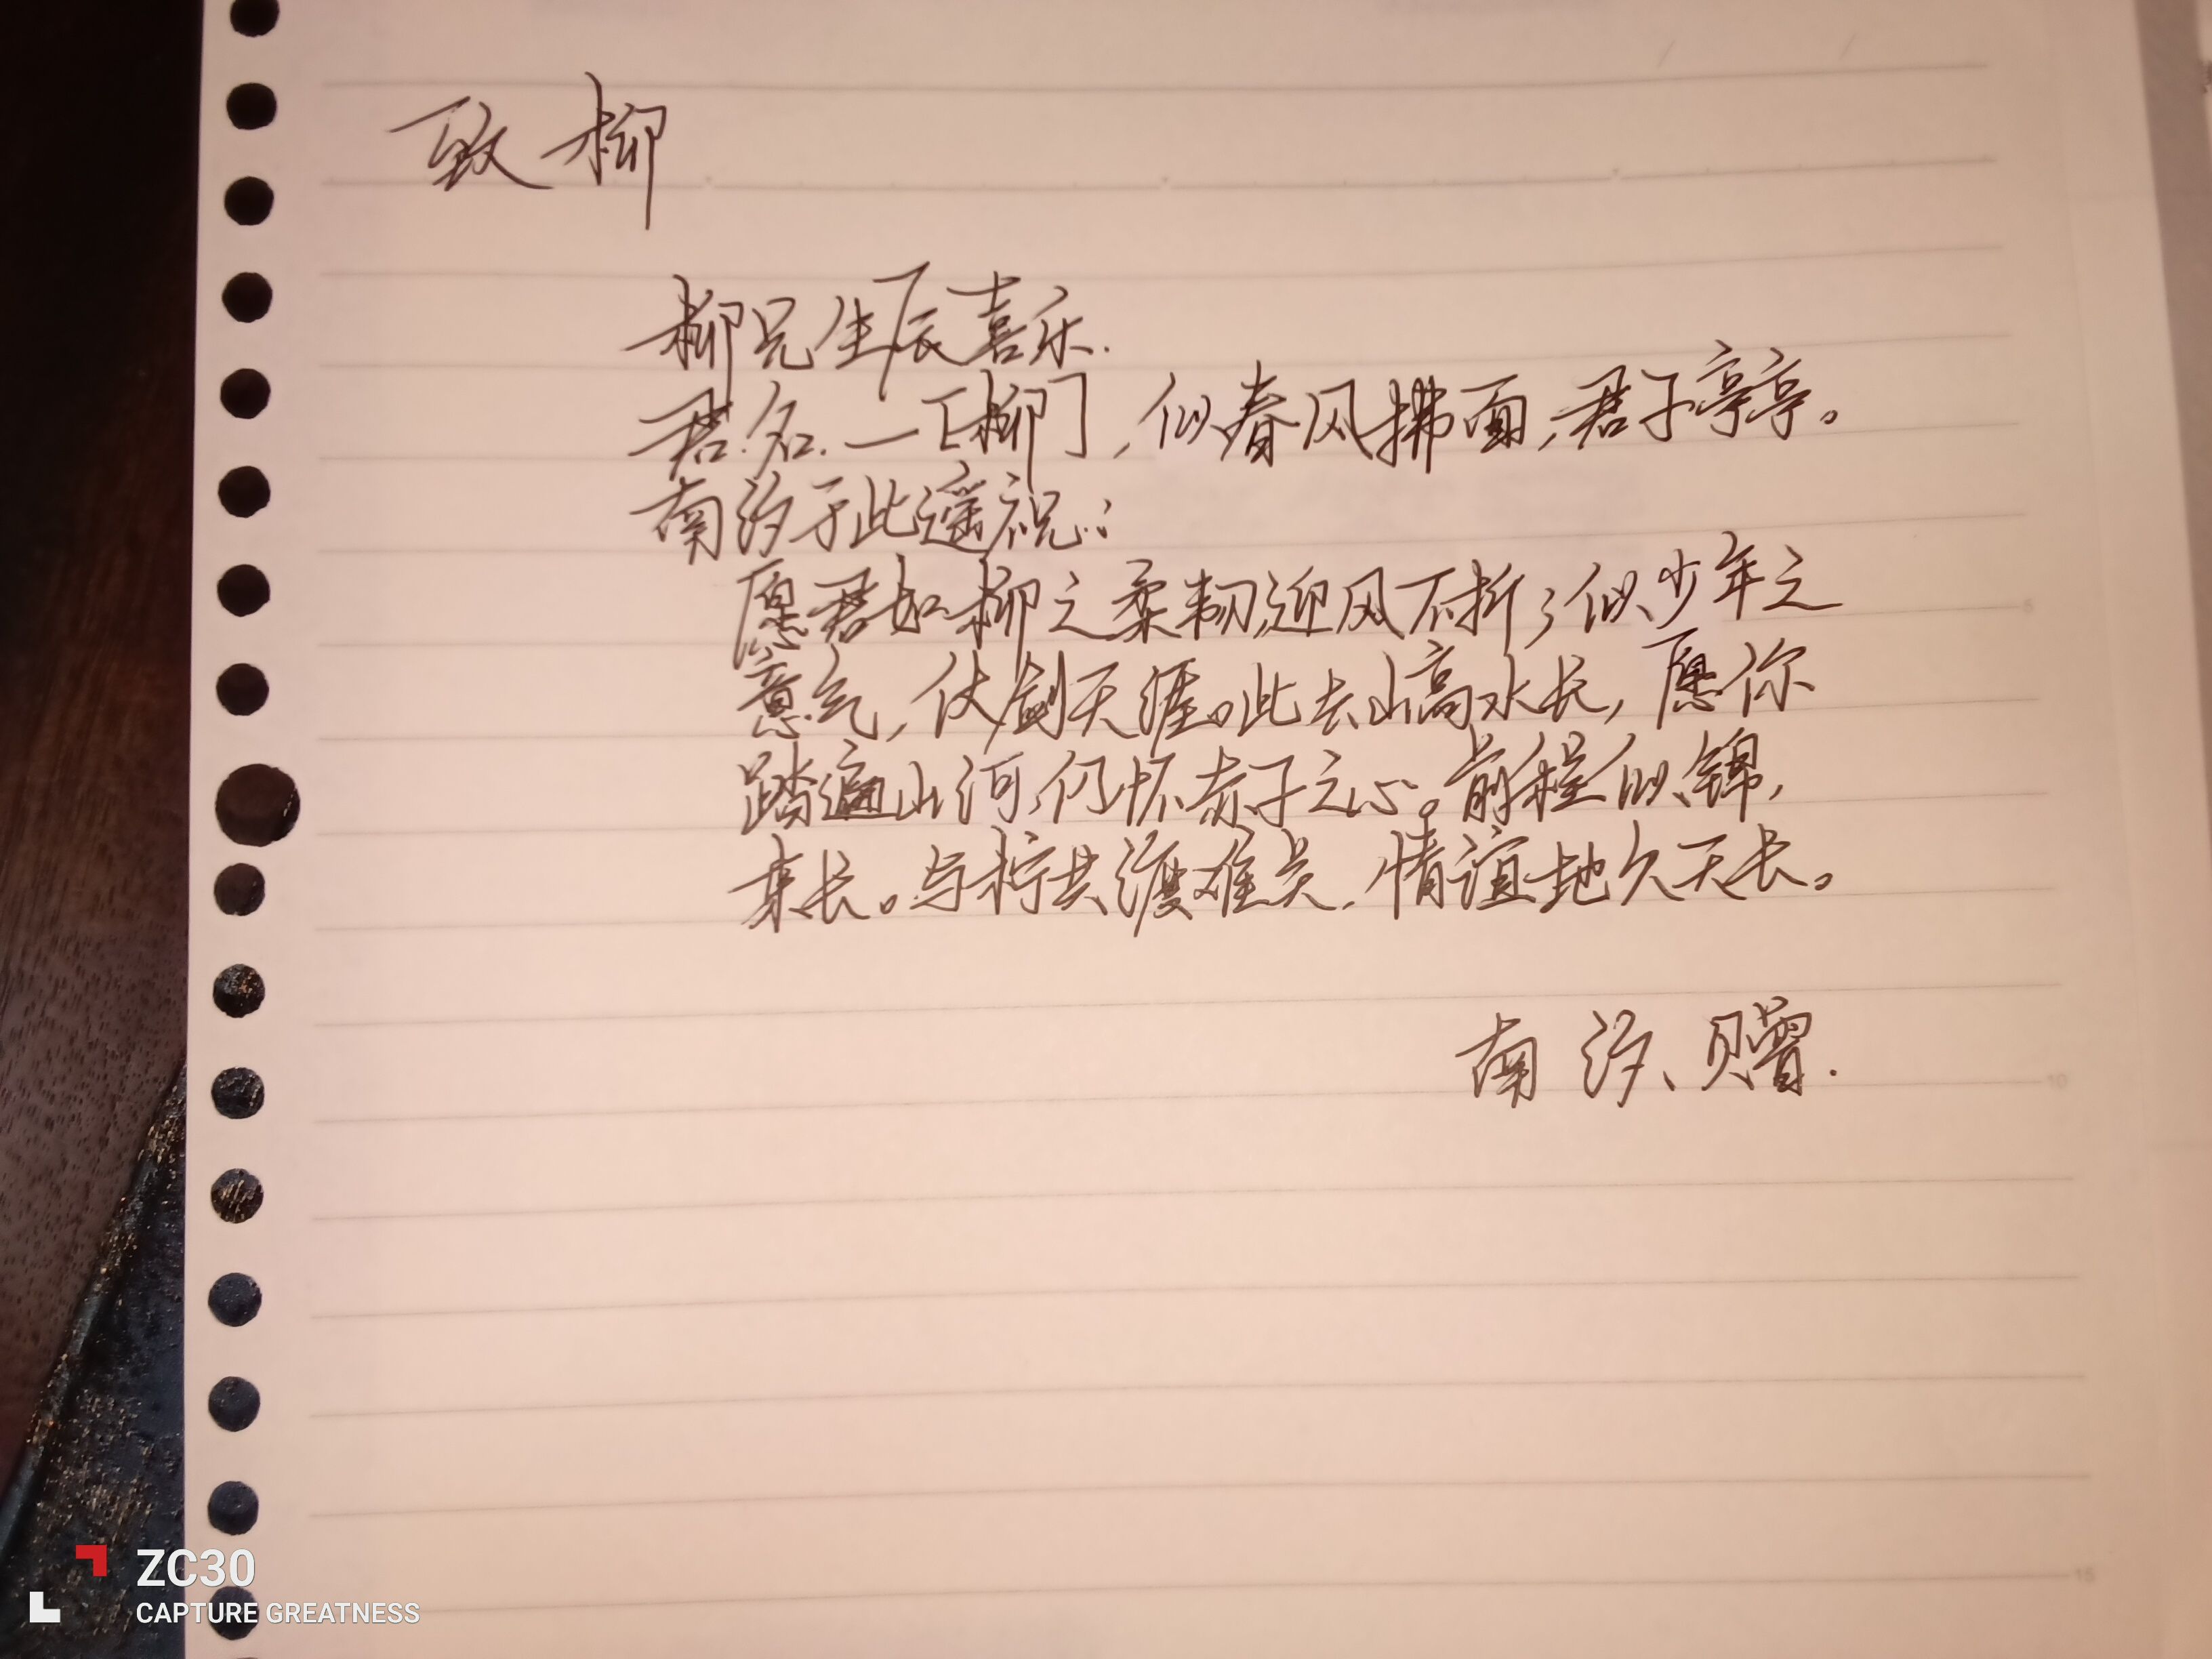 致柳
柳兄生辰喜乐.
君名.一「柳」,似春风拂面,君子亭亭。
南汐于此遥祝:
愿君如柳之柔韧,迎风不折;似少年之
意气,仗剑天涯。此去山高水长,愿你
踏遍山河,仍怀赤子之心。前程似锦,
来长。与柠共渡难关,情谊地久天长。
南汐、赠.
5
10
15
ZC30
CAPTURE GREATNESS